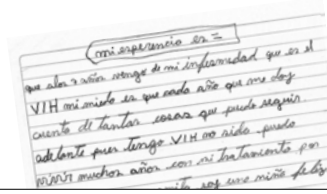 mi esperiencia es =
que alos 7 años vengo de mi enfermedad que es el
VIH mi miedo es que cada año que me doy
cuenta de tantas cosas que puedo seguir
adelante pues tengo VIH no sido puedo
vivir muchos años con mi tratamiento por
soy una niña feliz